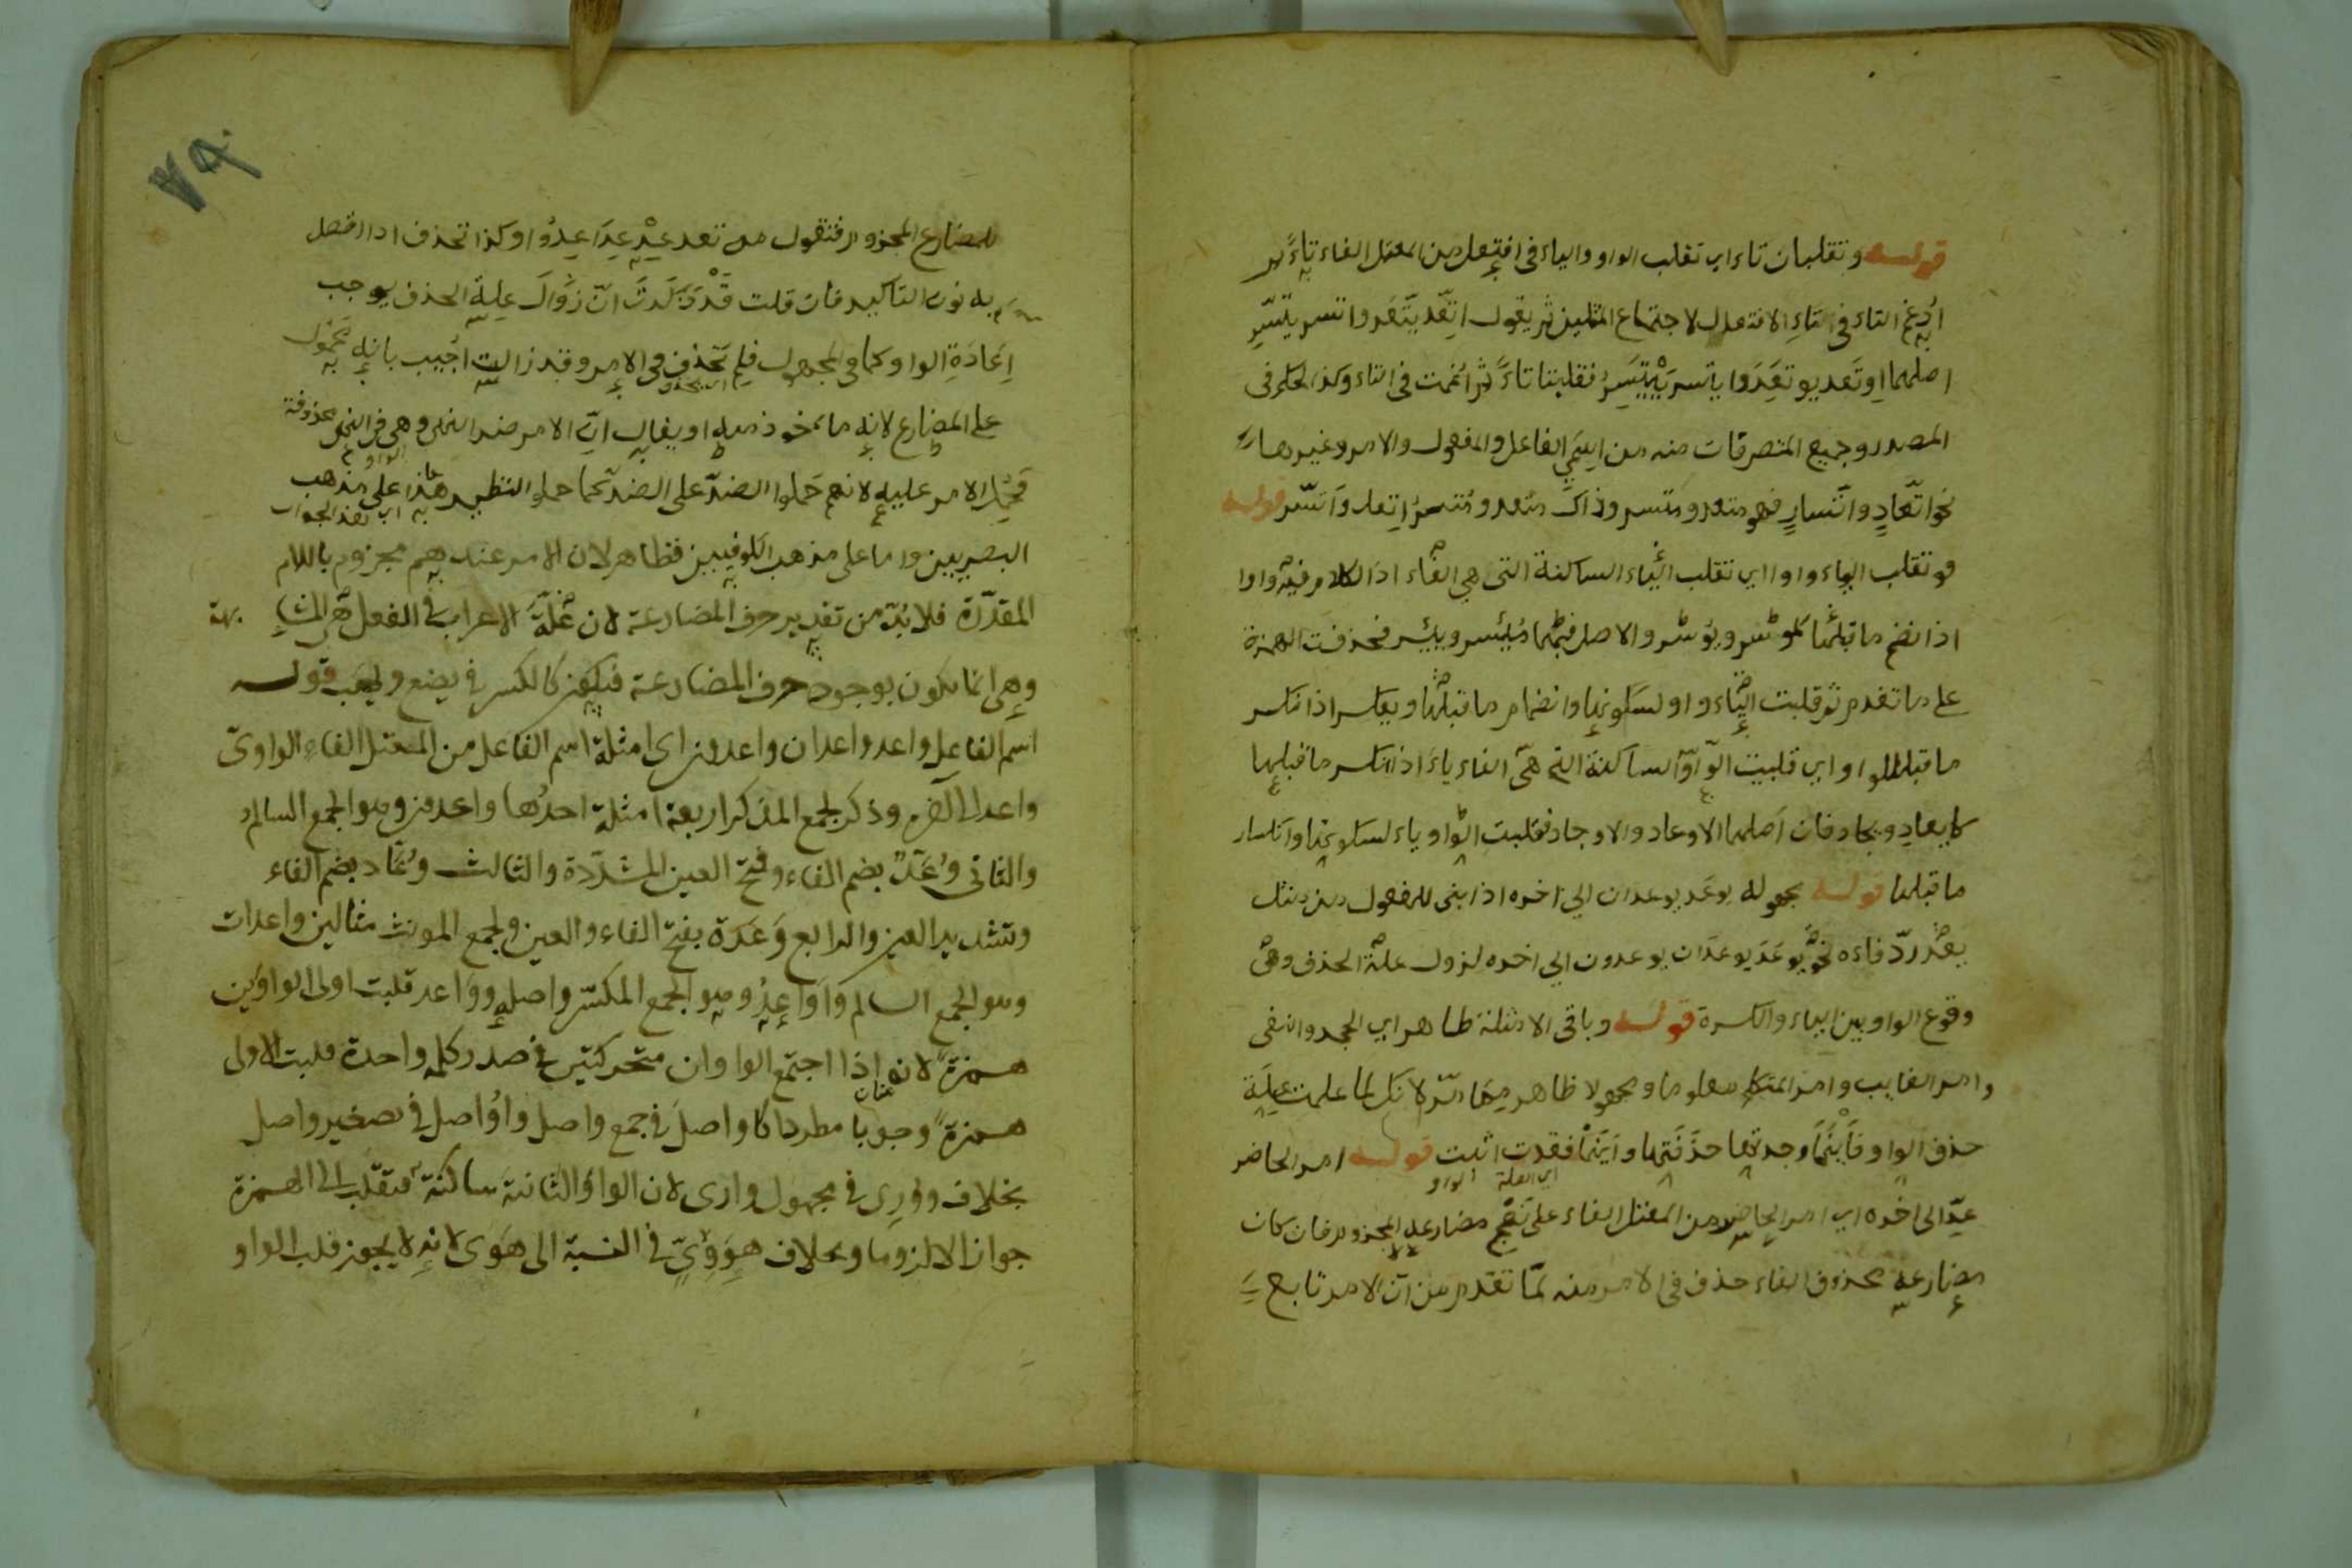 قوله وتقلبان تاء اي تقلب الواو والياء في افتعل من المعتل الفاء تاء ثم
ادغم التاء في التاء الافتعال لاجتماع المثلين ثم يقول اتّعد يتّعد واتسر يتّسر
اصلهما اوتعد يوتعد وايتسر ييتسر فقلبتا تاءً ثم ادغمت في التاء وكذا الحكم في
المصدر وجميع المتصرفات منه من اسمي الفاعل والمفعول والامر وغيرها
نحو اتّعادٍ واتّسارٍ فهو متعد ومتسر وذاك متعد ومتسر اتعد واتّسر قوله
وتقلب الياء واوا اي تقلب الياء الساكنة التي هي الفاء اذ الكلام فيه واوا
اذا انضم ما قبلها كموسر ويوسر والاصل فيهما ميسر وييسر فحذفت الهمزة
على ما تقدم ثم قلبت الياء واو لسكونها وانضمام ما قبلها وبعكس اذا انكسر
ما قبل الواو اي قلبت الواو الساكنة التي هي الفاء ياء اذا انكسر ما قبلها
كايعاد ويجاد فان اصلهما الاوعاد والاوجاد فقلبت الواو ياء لسكونها وانكسار
ما قبلها قوله مجهوله يوعد يوعدان الي اخره اذا بني للمفعول من مثل
يعد ردّ فاءه نحو يوعد يوعدان يوعدون الي اخره لزول علة الحذف وهي
وقوع الواو بين الياء والكسرة قوله وباقي الامثلة ظاهر اي الجحد والنفي
وامر الغايب وامر المتكلم معلوما ومجهولا ظاهر مما مرّ لانك لما علمت علة
حذف الواو فاينما وجدتها حذفتها واينما فقدت اثبت قوله امر الحاضر
اي العلة الواو
عِد الى اخره اي امر الحاضر من المعتل الفاء على نهج مضارعه المجزوم فان كان
مضارعه محذوف الفاء حذف في الامر منه لمّا تقدم من انّ الامر تابع
للمضارع المجزوم فتقول من تعد عِدْ عِدَا عِدُوا وكذا تحذف اذا اتصل
به نون التاكيد فان قلت انّ زوال علة الحذف يوجب
اعادة الواو كما في المجهول فلم تحذف في الامر وقد زالت اُجيب بانه محمول
على المضارع لانه ماخوذ منه او يقال انّ الامر ضد النهي وهي في النهي محذوفة
الواو
فحمل الامر عليه لانهم حملوا الضدّ على الضد كما حملوا النظير هذا على مذهب
اي هذا الجواب
البصريين واما على مذهب الكوفيين فظاهر لان الامر عندهم مجزوم باللام
المقدّرة فلابدّ من تقدير حرف المضارعة لان علّة الاعراب في الفعل هي المشابهة
وهي انما يكون بوجود حرف المضارعة فيكون كالكسر في يضع ويهب قوله
اسم الفاعل واعد واعدان واعدون اي امثلة اسم الفاعل من المعتل الفاء الواويّ
واعد الى اخره وذكر لجمع المذكر اربعة امثلة احدها واعدون وهو الجمع السالم
والثاني وُعَّد بضم الفاء وفتح العين المشدّدة والثالث وُعّاد بضم الفاء
وتشديد العين والرابع وَعَدَة بفتح الفاء والعين ولجمع المونث مثالين واعدات
وهو الجمع السالم وَاَوَاعِدُ وهو الجمع المكسّر واصله وواعد قلبت اولى الواوين
همزة لانه اذا اجتمع الواوان متحركتين في صدر كلمة واحدة قلبت الاولى
همزة وجوبا مطردا كاواصل في جمع واصل واوُاصل في تصغير واصل
بخلاف ووري في مجهول وارى لان الواو الثانية ساكنة فتقلب الى الهمزة
جوازا لا لزوما وبخلاف هَوَوِيّ في النسبة الى هَوَى لانه لا يجوز قلب الواو